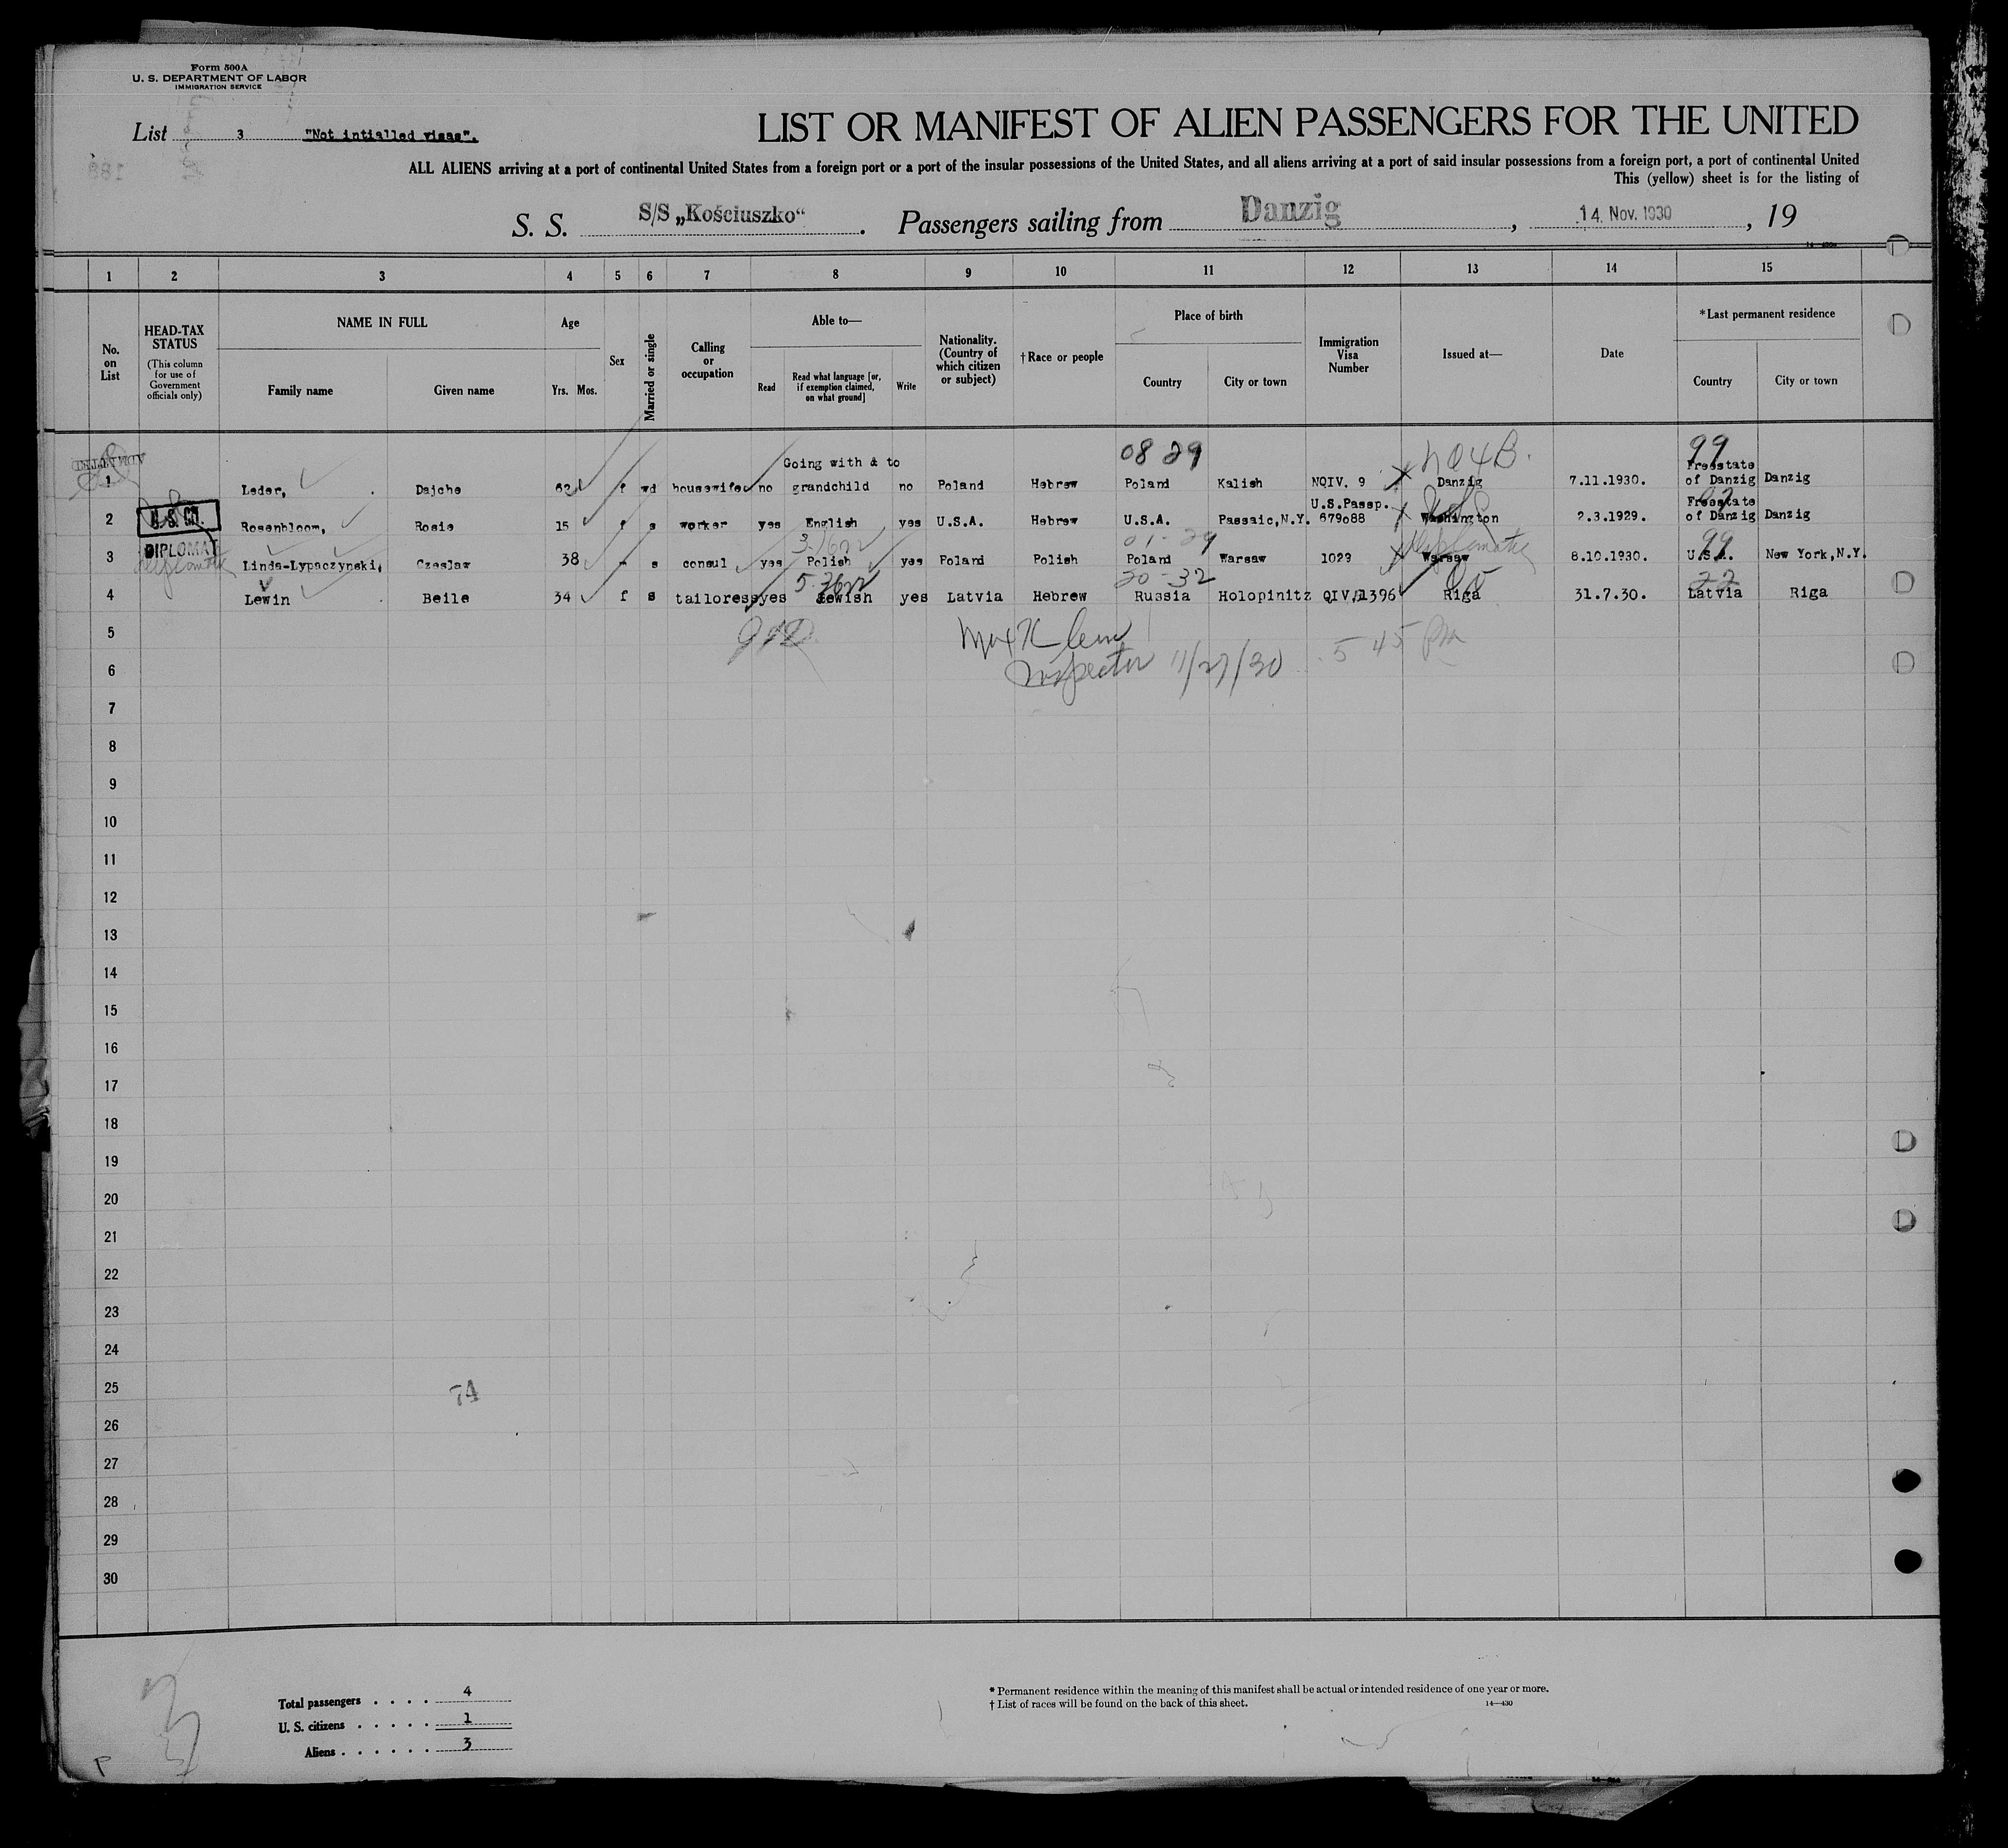 Form 500A
U. S. DEPARTMENT OF LABOR
IMMIGRATION SERVICE
List 3 "Not intialled visas".
LIST OR MANIFEST OF ALIEN PASSENGERS FOR THE UNITED
ALL ALIENS arriving at a port of continental United States from a foreign port or a port of the insular possessions of the United States, and all aliens arriving at a port of said insular possessions from a foreign port, a port of continental United
This (yellow) sheet is for the listing of
S. S. S/S „Kościuszko“ . Passengers sailing from Danzig , 14. Nov. 1930 , 19
1 2 3 4 5 6 7 8 9 10 11 12 13 14 15
No. on List
HEAD-TAX STATUS (This column for use of Government officials only)
NAME IN FULL
Family name Given name
Age
Yrs. Mos.
Sex
Married or single
Calling or occupation
Able to—
Read Read what language [or, if exemption claimed, on what ground] Write
Nationality. (Country of which citizen or subject)
†Race or people
Place of birth
Country City or town
Immigration Visa Number
Issued at—
Date
*Last permanent residence
Country City or town
ADMITTED
08 29 NO4B. 99
1 Leder, Dajche 62 f wd housewife no Going with & to grandchild no Poland Hebrew Poland Kalish NQIV. 9 Danzig 7.11.1930. Freestate of Danzig Danzig
U.S. CIT.
2 Rosenbloom, Rosie 15 f s worker yes English yes U.S.A. Hebrew U.S.A. Passaic,N.Y. U.S.Passp. 679088 Washington 2.3.1929. Freestate of Danzig Danzig
DIPLOMAT
Diplomatic
01-29 Diplomatic 99
3 Linde-Lypaczynski, Czeslaw 38 s consul yes Polish yes Poland Polish Poland Warsaw 1029 Warsaw 8.10.1930. U.S.A. New York,N.Y.
20-32 22
4 Lewin Beile 34 f s tailoress yes Jewish yes Latvia Hebrew Russia Holopinitz QIV,1396 Riga 31.7.30. Latvia Riga
5
Inspector 11/27/30 5 45 PM
6
7
8
9
10
11
12
13
14
15
16
17
18
19
20
21
22
23
24
25 74
26
27
28
29
30
Total passengers . . . . 4
U. S. citizens . . . . . 1
Aliens . . . . . . 3
* Permanent residence within the meaning of this manifest shall be actual or intended residence of one year or more.
† List of races will be found on the back of this sheet. 14—430